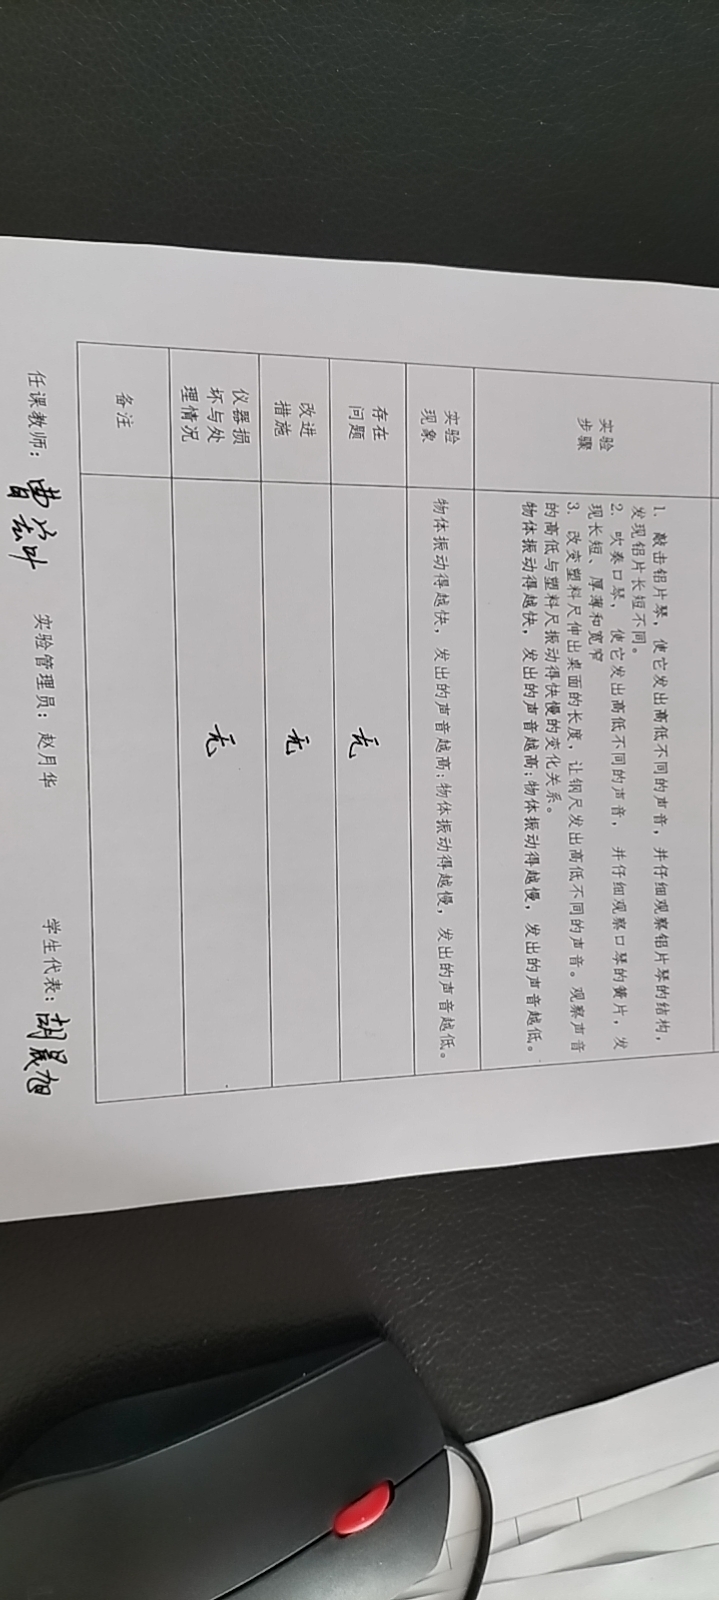 实验
步骤
1. 敲击铝片琴，使它发出高低不同的声音，并仔细观察铝片琴的结构，
发现铝片长短不同。
2. 吹奏口琴，使它发出高低不同的声音，并仔细观察口琴的簧片，发
现长短、厚薄和宽窄
3. 改变塑料尺伸出桌面的长度，让钢尺发出高低不同的声音。观察声音
的高低与塑料尺振动得快慢的变化关系。
物体振动得越快，发出的声音越高;物体振动得越慢，发出的声音越低。
实验
现象
物体振动得越快，发出的声音越高;物体振动得越慢，发出的声音越低。
存在
问题
无
改进
措施
无
仪器损
坏与处
理情况
无
备注
任课教师： 实验管理员：赵月华 学生代表：胡晨旭